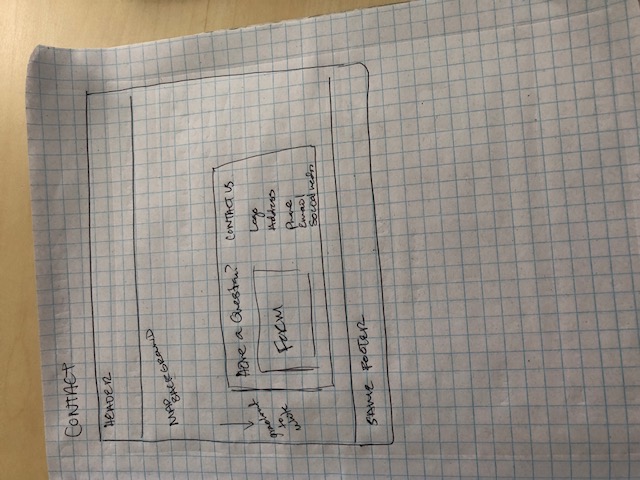 CONTACT
HEADER
MAP
BACKGROUND
gradient
to
white
Have a Question?
FORM
CONTACT US
Logo
Address
Phone
Email
Social media
SAME FOOTER